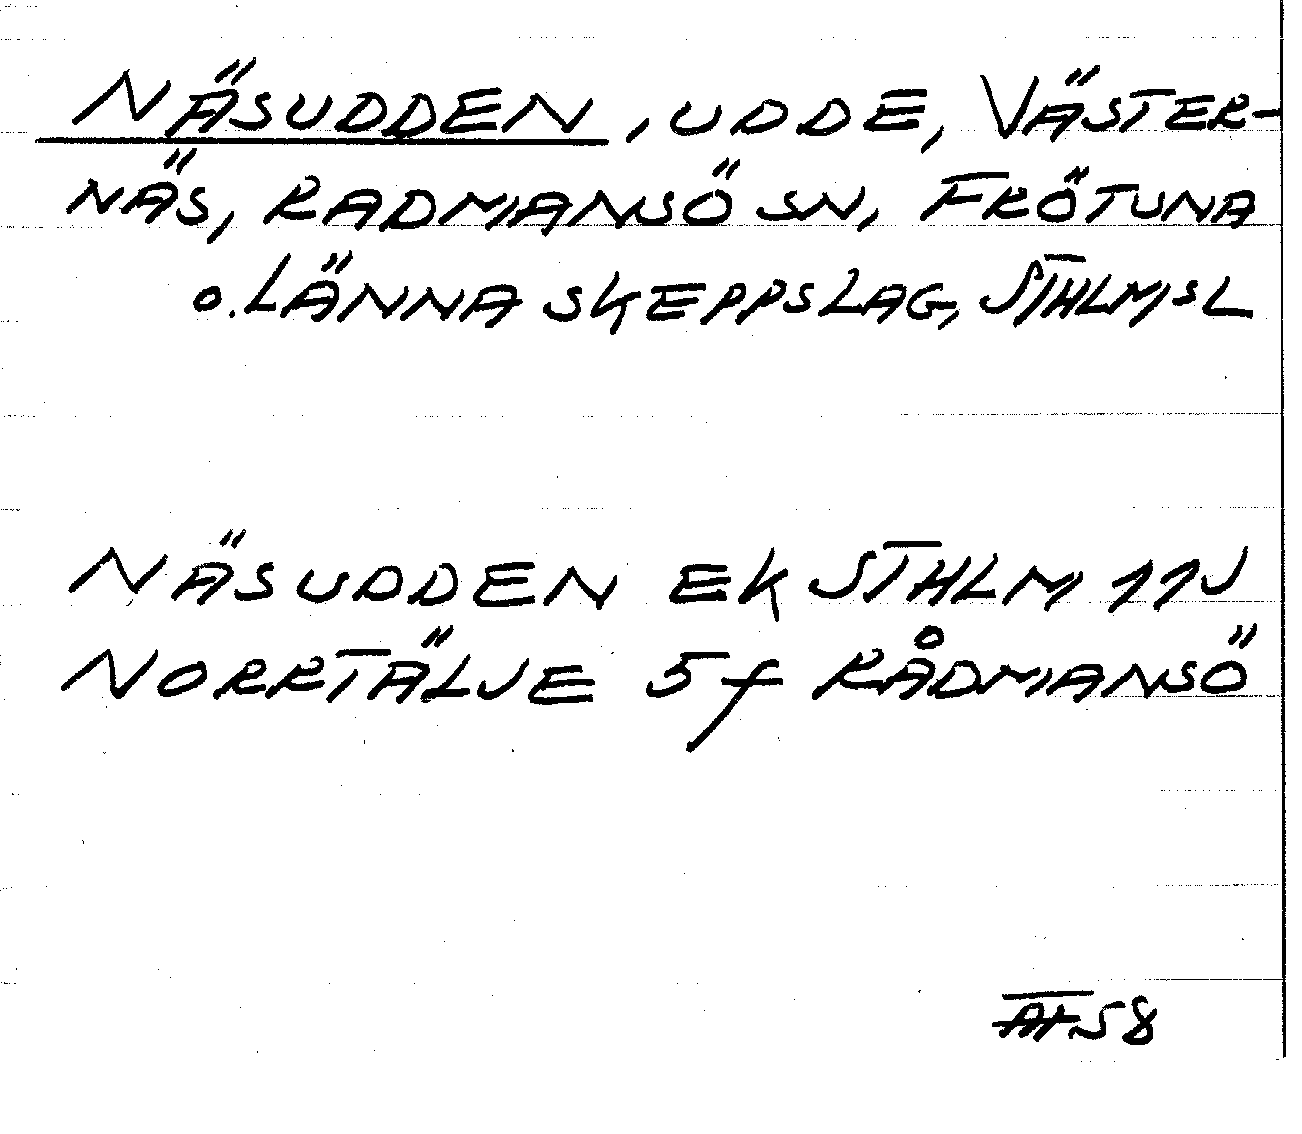 NÄSUDDEN, UDDE, VÄSTER-
NÄS, RADMANSÖ SN, FRÖTUNA
O. LÄNNA SKEPPSLAG, STHLMSL
NÄSUDDEN EK STHLM 11J
NORRTÄLJE 5f RÅDMANSÖ
58